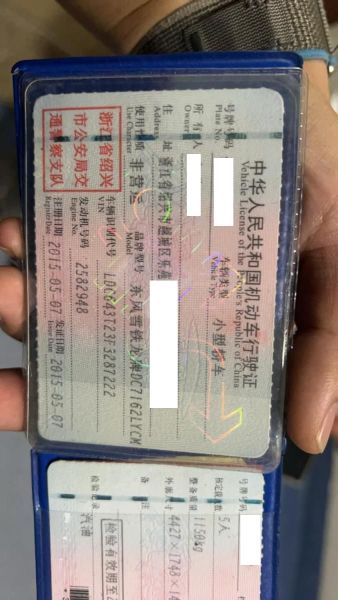 中华人民共和国机动车行驶证
Vehicle License of the People's Republic of China
号牌号码
Plate No.
车辆类型
Vehicle Type
小型轿车
所有人
Owner
住址
Address
浙江省绍兴市越城区东
使用性质
Use Character
非营运
品牌型号
Model
东风雪铁龙牌DC7162LYCM
浙江省绍兴
市公安局交
通警察支队
车辆识别代号
VIN
LDC643T23F3287222
发动机号码
Engine No.
2582948
注册日期
Register Date
2015-05-07
发证日期
Issue Date
2015-05-07
号牌号码
核定载人数
5人
整备质量
1150kg
外廓尺寸
4427×1748×14
备注
检验有效期至
检验记录
汽油